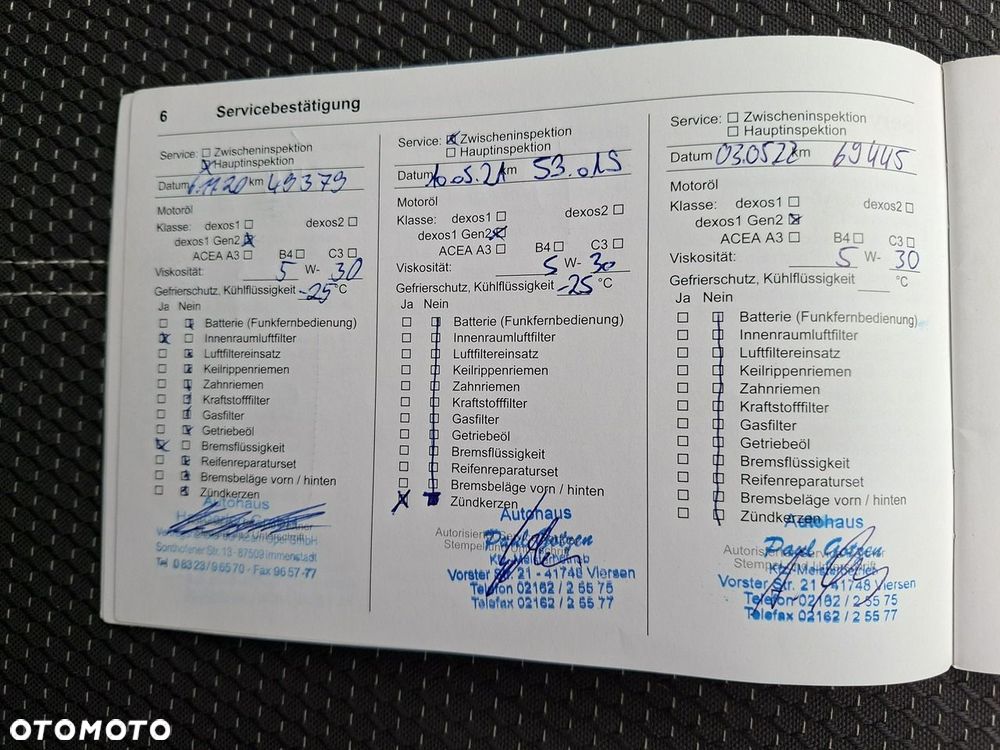 6 Servicebestätigung
Service: Zwischeninspektion
Hauptinspektion
Datum 6.11.20 km 49379
Motoröl
Klasse: dexos1 dexos2
dexos1 Gen2
ACEA A3 B4 C3
Viskosität: 5 W- 30
Gefrierschutz, Kühlflüssigkeit -25 °C
Ja Nein
Batterie (Funkfernbedienung)
Innenraumluftfilter
Luftfiltereinsatz
Keilrippenriemen
Zahnriemen
Kraftstofffilter
Gasfilter
Getriebeöl
Bremsflüssigkeit
Reifenreparaturset
Bremsbeläge vorn / hinten
Zündkerzen
Autohaus
Sonthofener Str. 13 - 87509 Immenstadt
Tel 08323/96570 - Fax 9657-77
Service: Zwischeninspektion
Hauptinspektion
Datum 10.05.21 km 53.015
Motoröl
Klasse: dexos1 dexos2
dexos1 Gen2
ACEA A3 B4 C3
Viskosität: 5 W- 30
Gefrierschutz, Kühlflüssigkeit -25 °C
Ja Nein
Batterie (Funkfernbedienung)
Innenraumluftfilter
Luftfiltereinsatz
Keilrippenriemen
Zahnriemen
Kraftstofffilter
Gasfilter
Getriebeöl
Bremsflüssigkeit
Reifenreparaturset
Bremsbeläge vorn / hinten
Zündkerzen
Autohaus
Vorster Str. 21 - 41748 Viersen
Telefon 02162 / 2 55 75
Telefax 02162 / 2 55 77
Service: Zwischeninspektion
Hauptinspektion
Datum 03.05.22 km 69445
Motoröl
Klasse: dexos1 dexos2
dexos1 Gen2
ACEA A3 B4 C3
Viskosität: 5 W- 30
Gefrierschutz, Kühlflüssigkeit °C
Ja Nein
Batterie (Funkfernbedienung)
Innenraumluftfilter
Luftfiltereinsatz
Keilrippenriemen
Zahnriemen
Kraftstofffilter
Gasfilter
Getriebeöl
Bremsflüssigkeit
Reifenreparaturset
Bremsbeläge vorn / hinten
Zündkerzen
Autohaus
Vorster Str. 21 - 41748 Viersen
Telefon 02162 / 2 55 75
Telefax 02162 / 2 55 77
OTOMOTO